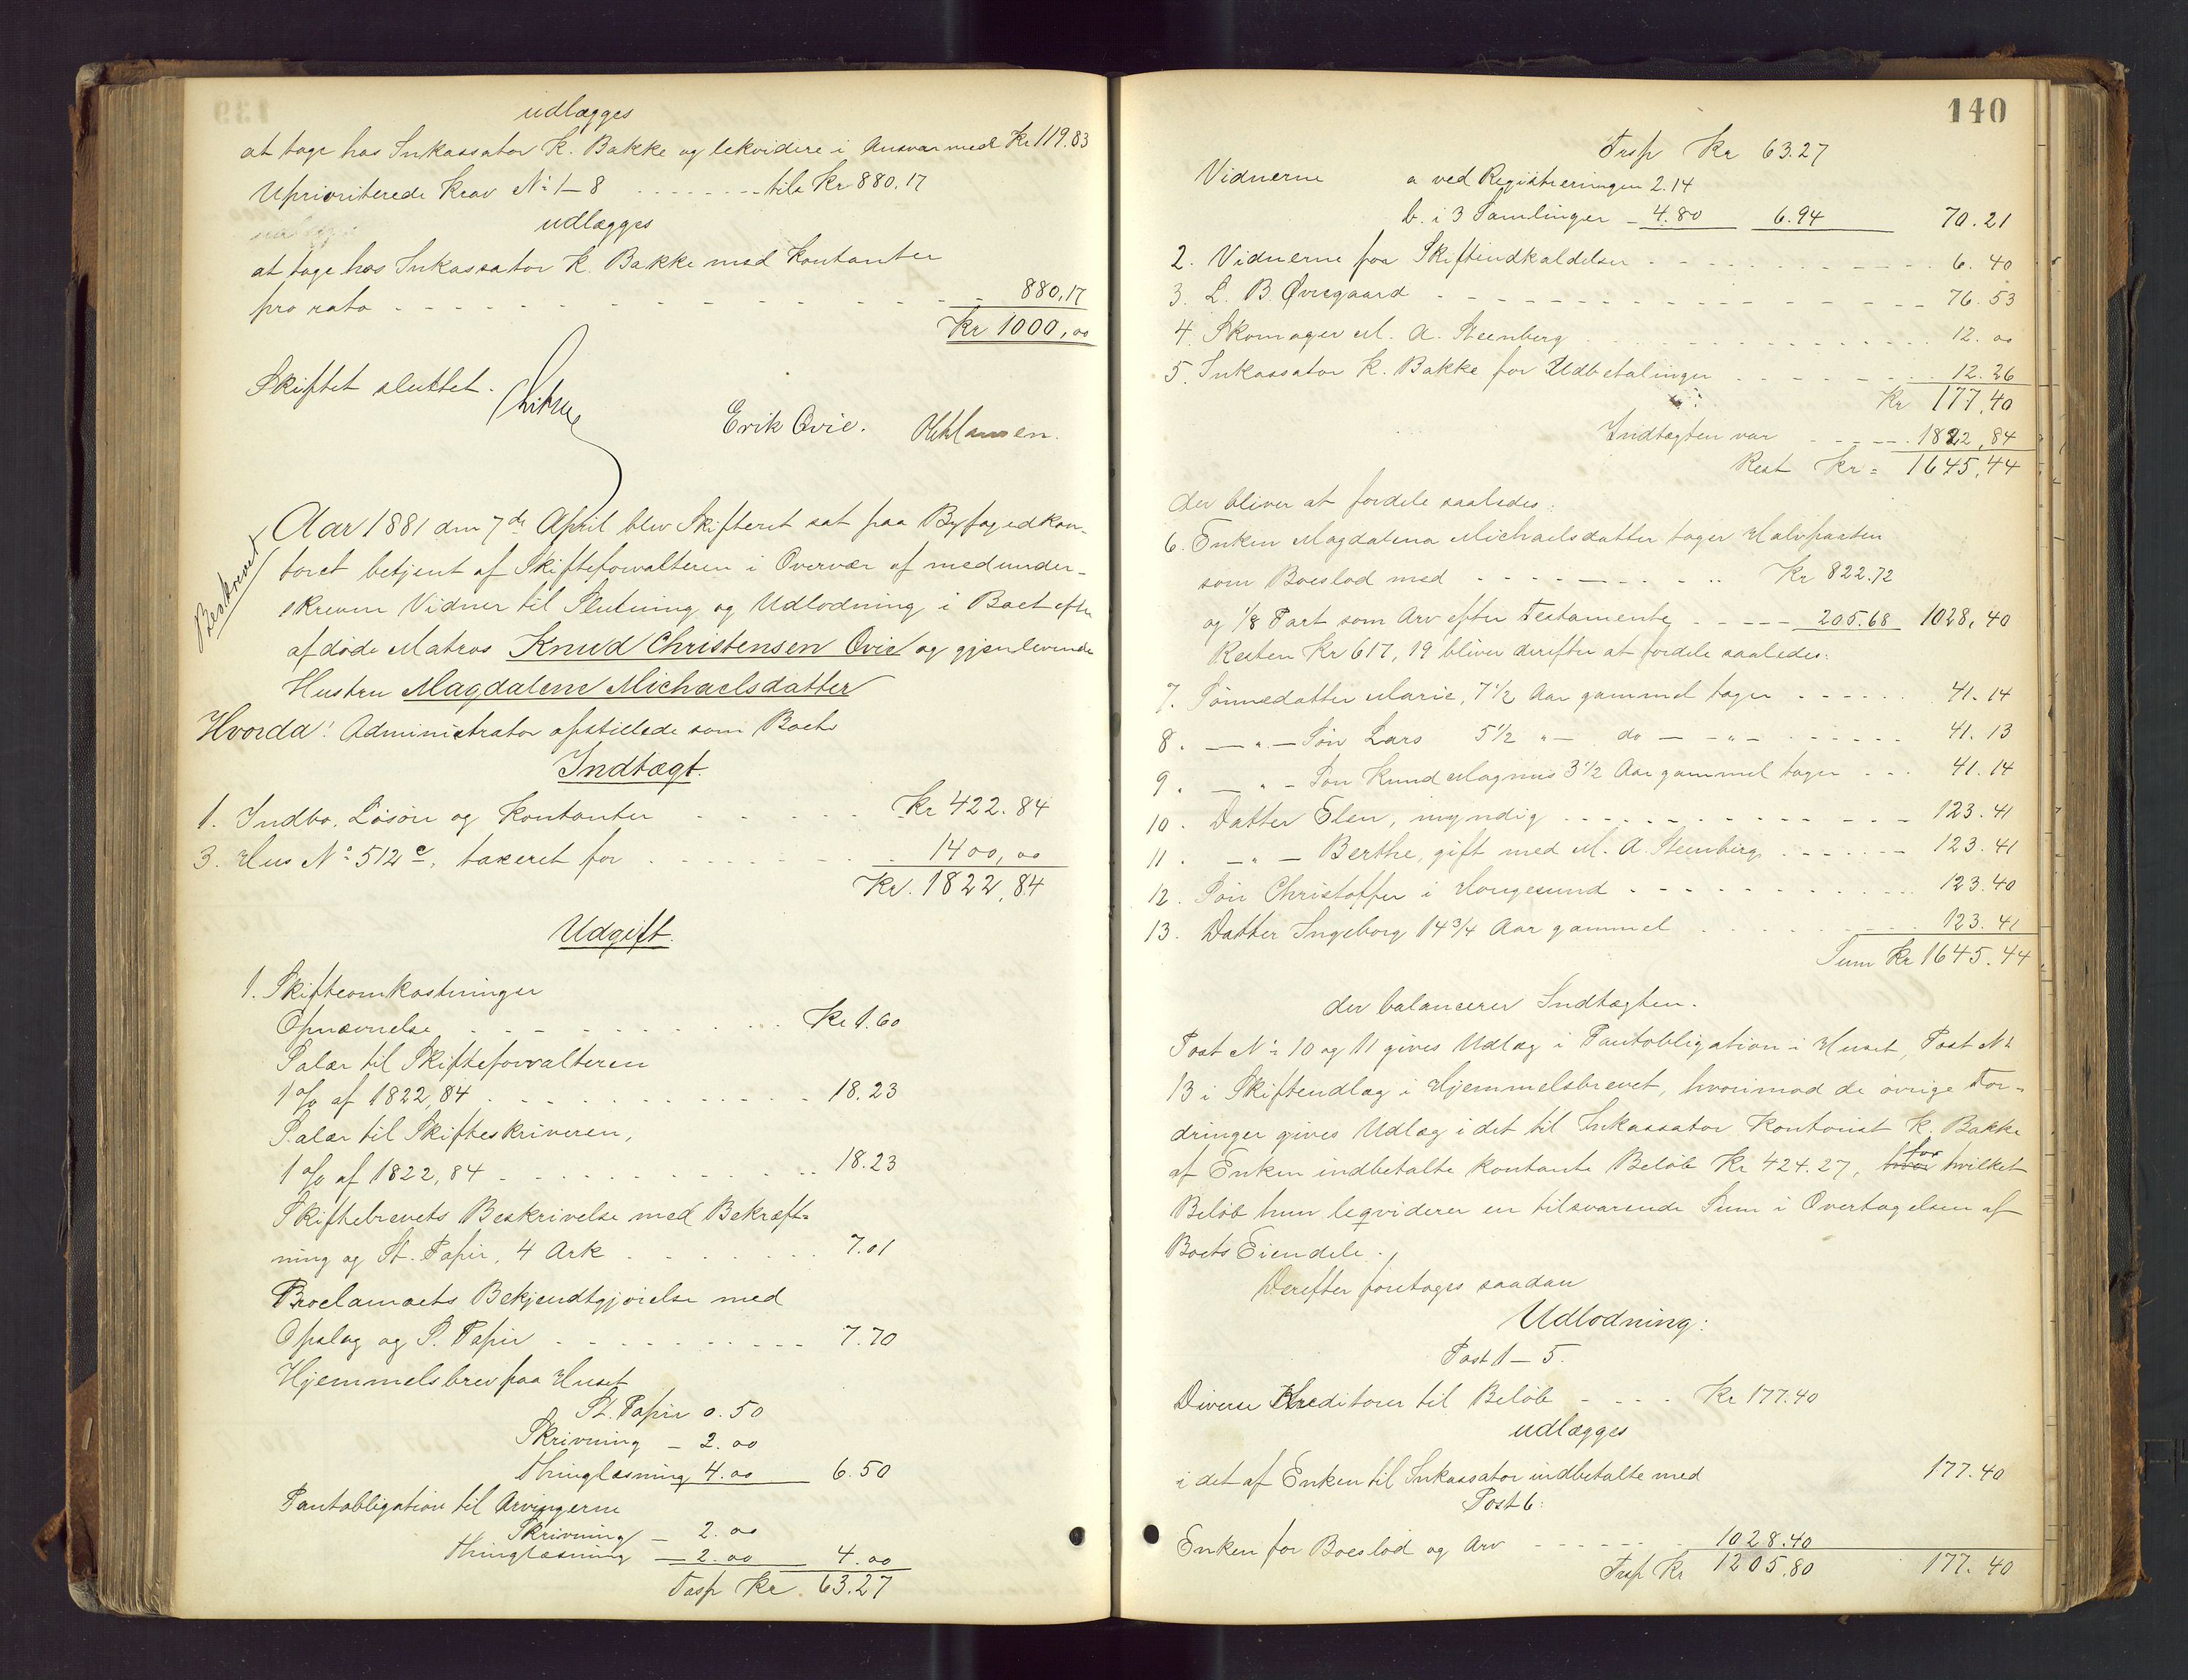 udlægges
at tage hos Inkassator K. Bakke og lekvidere i Ansvar med Kr 119.83
Uprioriterede Krav No 1-8 - - - - - - - - tils Kr 880.17
udlægges
at tage hos Inkassator K. Bakke med Kontanter
pro rata - - - - - - - - - - - - - - 880,17
Kr 1000,00
Skiftet sluttet.
Erik Qvie. Hansen.
Beskrevet
Aar 1881 den 7de April blev Skifteret sat paa Byfogedkon-
toret betjent af Skifteforvalteren i Overvær af medunder-
skrevne Vidner til Slutning og Udlodning i Boet efter
afdøde Matros Knud Christensen Qvie og gjenlevende
Hustru Magdalene Michaelsdatter
Hvorda! Administrator opstillede som Boets
Indtægt.
1. Indbo, Løsøre og Kontanter - - - - - - Kr 422.84
3. Hus No 512c, taxeret for - - - - - - - 1400,00
Kr. 1822,84
Udgift.
1. Skifteomkostninger
Opnævnelse - - - - - - - - - - Kr 1.60
Salær til Skifteforvalteren
1 % af 1822,84 - - - - - - - - - - 18.23
Salær til Skifteskriveren,
1 % af 1822,84 - - - - - - - - - - 18.23
Skiftebrevets Beskrivelse med Bekræft=
ning og St. Papir, 4 Ark - - - - - - - 7.01
Proclamaets Bekjendtgjørelse med
Opslag og S. Papir - - - - - - - - 7.70
Hjemmelsbrev paa Huset
St. Papir 0.50
Skrivning - 2.00
thinglæsning 4.00 6.50
Pantobligation til Arvingerne
Skrivning - 2.00
thinglæsning - 2.00 4.00
Trsp Kr 63.27
140
Trsp Kr 63.27
Vidnerne a ved Registreringen 2.14
b. i 3 Samlinger - 4.80 6.94 70.21
2. Vidnerne paa Skifteindkaldelsen - - - - - - - - - 6.40
3. L. B. Øvregaard - - - - - - - - - - - - - 76.53
4. Skomager M. A. Steenberg - - - - - - - - - - 12.00
5. Inkassator K. Bakke for Udbetalinger - - - - - - 12.26
Kr 177,40
Indtægten var - - - - - 1822,84
Rest Kr = 1645,44
der bliver at fordele saaledes:
6. Enken Magdalena Michaelsdatter tager Halvparten
som Boeslod med - - - - - - - - - Kr 822.72
og 1/8 Part som Arv efter Testamente - - - - - 205.68 1028,40
Resten Kr 617,19 bliver derefter at fordele saaledes:
7. Sønnedatter Marie, 7 1/2 Aar gammel tager - - - - - 41.14
8. - " - Søn Lars 5 1/2 " - do - - " - - - - - - - 41.13
9. - " - Søn Knud Magnus 3 1/2 Aar gammel tager - - - 41.14
10. Datter Elen, myndig - - - - - - - - - - - - 123.41
11. - " - Berthe, gift med M. A. Steenberg - - - - - - - 123.41
12. Søn Christoffer i Haugesund - - - - - - - - - - 123.40
13. Datter Ingeborg 14 3/4 Aar gammel - - - - - - - 123.41
Sum Kr 1645.44
der balancerer Indtægten.
Post No 10 og 11 gives Udlæg i Pantobligation i Huset, Post No
13 i Skifteudlæg i Hjemmelsbrevet, hvorimod de øvrige For-
dringer gives Udlæg i det til Inkassator Kontorist K. Bakke
af Enken indbetalte kontante Beløb Kr 424.27, for hvilket
Beløb hun leqviderer en tilsvarende Sum i Overtagelsen af
Boets Eiendele.
Derefter foretoges saadan
Udlodning:
Post 1 - 5.
Diverse Kreditorer til Beløb - - - - Kr 177.40
udlægges
i det af Enken til Inkassator indbetalte med 177.40
Post 6:
Enken for Boeslod og Arv - - - - - - 1028.40
Trsp Kr 1205.80 177.40